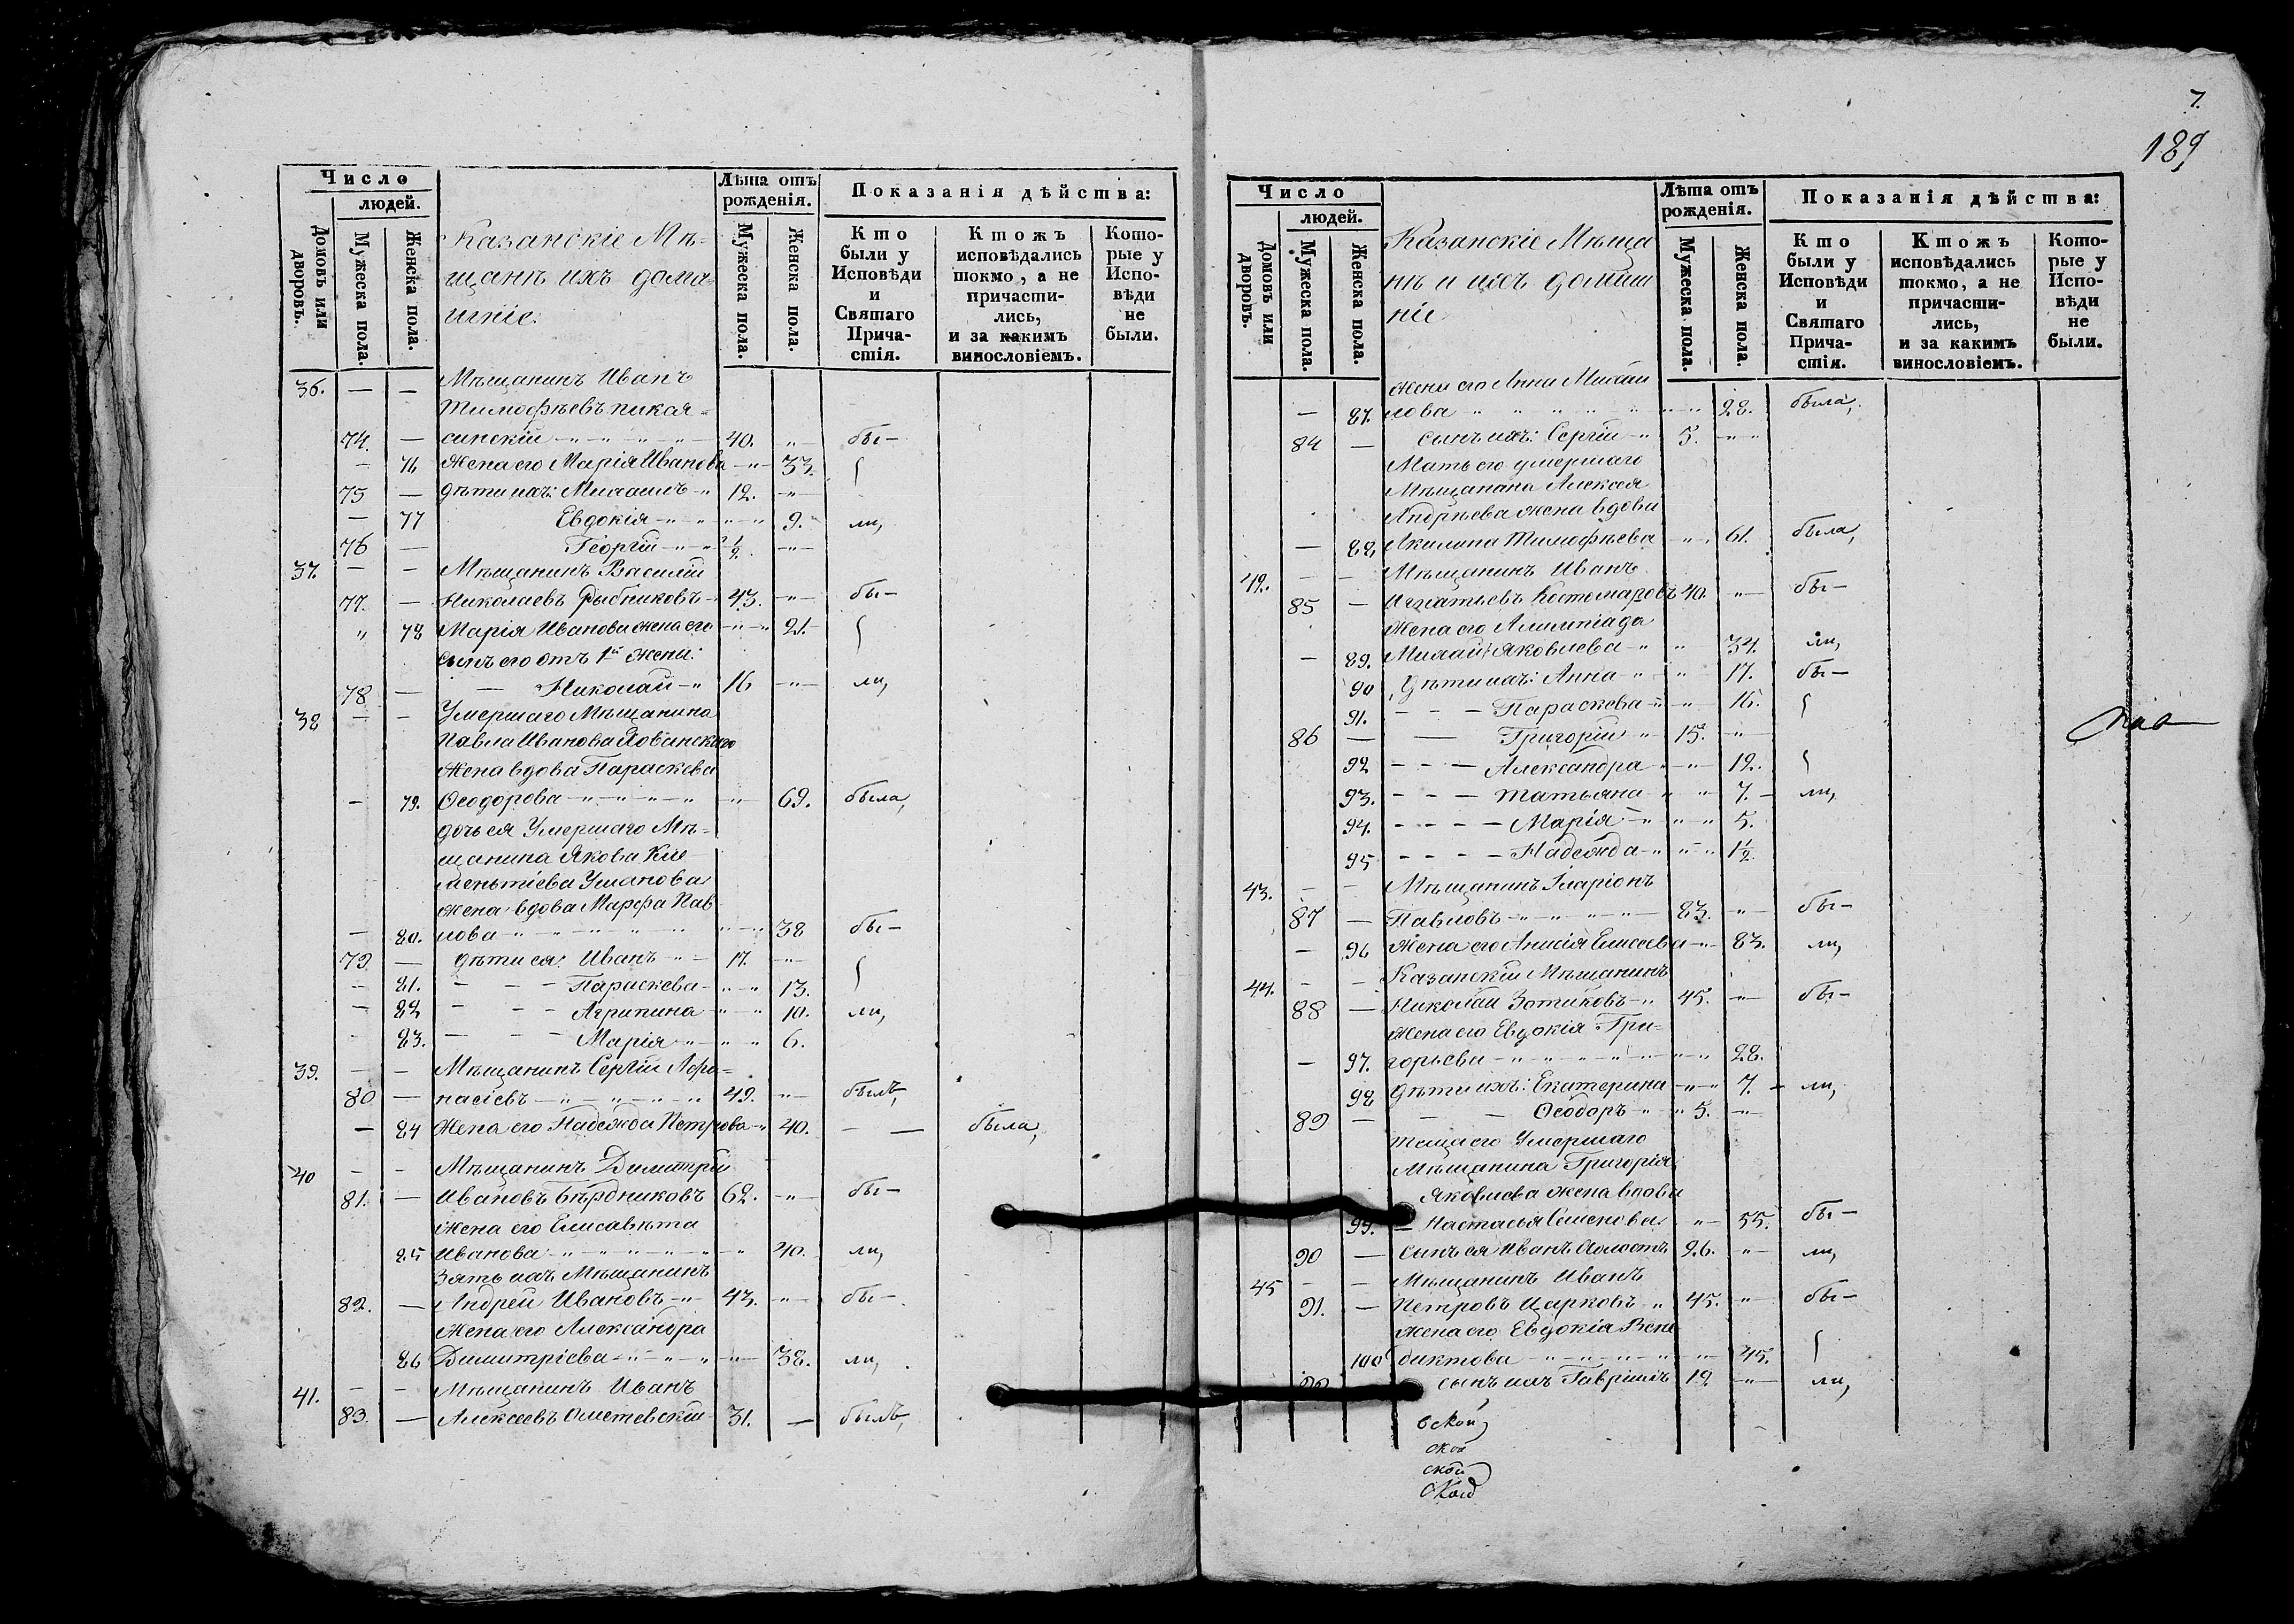 Число
людей.
Домовъ или дворовъ.
Мужеска пола.
Женска пола.
Казанскіе Мѣ-
щанѣ ихъ дома
шніе:
Лѣта отъ
рожденія.
Мужеска пола.
Женска пола.
Показанія дѣйства:
Кто были у Исповѣди и Святаго Причастія.
Ктожъ исповѣдались токмо, а не причастились, и за какимъ винословіемъ.
Которые у Исповѣди не были.
36. — — Мѣщанинъ Иванъ
Тимофѣевъ
74. — синскій 40. бы-
— 76 Жена его Марія Иванова 33.
75 — дѣти ихъ: Михаилъ 12.
— 77 Евдокія 9. ли,
76 — Георгій 1/2
37. — — Мѣщанинъ Василій
77. — Николаевъ Рыбниковъ 43. бы-
" 78 Марія Иванова жена его 21.
сынъ его отъ 1й жены:
78 — Николай 16 ли,
38 — — Умершаго Мѣщанина
Павла Иванова
Жена вдова Параскева
— 79. Ѳеодорова 69. была,
дочь ея Умершаго Мѣ-
щанина Якова Кле-
ментіева
жена вдова Марфа Пав
— 80. лова 38 бы-
79 — дѣти ея: Иванъ 17.
— 81. Параскева 13.
— 82 Агрипина 10. ли,
— 83. Марія 6.
39. — — Мѣщанинъ Сергій Афа-
80 — насіевъ 49. былъ,
— 84 Жена его Надежда Петрова 40. — — была,
40 — — Мѣщанинъ Димитрій
81. — Ивановъ Бѣрдниковъ 62. бы-
Жена его Елисавѣта
85 Иванова 40. ли,
Зять ихъ Мѣщанинъ
82. — Андрей Ивановъ 43. бы-
Жена его Александра
86 Димитріева 38. ли,
41. — — Мѣщанинъ Иванъ
83. — Алексѣевъ Ометевскій 31. — былъ,
7.
189
Число
людей.
Домовъ или дворовъ.
Мужеска пола.
Женска пола.
Казанскіе Мѣща
нѣ и ихъ домаш
ніе
Лѣта отъ
рожденія.
Мужеска пола.
Женска пола.
Показанія дѣйства:
Кто были у Исповѣди и Святаго Причастія.
Ктожъ исповѣдались токмо, а не причастились, и за какимъ винословіемъ.
Которые у Исповѣди не были.
жена его Анна Михай
— 87. лова 28. была,
84 — сынъ ихъ: Сергій 5.
Мать его умершаго
Мѣщанина Алексея
Андрѣева жена вдова
— 88, Акилина Тимофѣева 61. была,
42. — — Мѣщанинъ Иванъ
85 — Игнатьевъ Костомаровъ 40. бы-
Жена его Алимпіада
— 89. Яковлева 34. ли,
90 Дѣти ихъ: Анна 17. бы-
91. Параскева 16.
86 — Григорій 15.
92 Александра 12.
93. Татьяна 7. ли,
94. Марія 5.
95 Надежда 1 1/2
43. — — Мѣщанинъ Иларіонъ
87 — Павловъ 83. бы-
— 96 Жена его Анисія Елисеева 83. ли,
44. — — Казанскій Мѣщанинъ
88 — Николай Зотиковъ 45. бы-
Жена его Евдокія Гри-
— 97. горьева 28.
98 Дѣти их: Екатерина 7. ли,
89 — Ѳеодоръ 5.
теща его Умершаго
Мѣщанина Григорія
Яковлева жена вдова
99. Настасья Семенова 55. бы-
90 — сынъ ея Иванъ холостъ 26. ли,
45 — — Мѣщанинъ Иванъ
91. — Петровъ Царковъ 45. бы-
Жена его Евдокія Вене
100 диктова 45.
92 сынъ ихъ Гавріилъ 19 ли,
ской